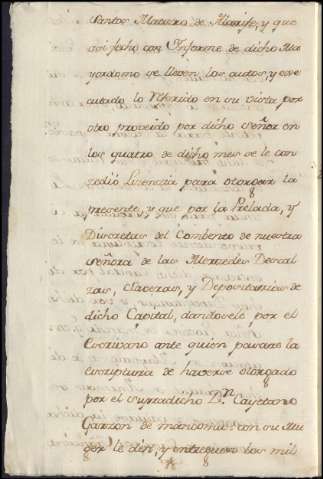 Santos Maestro de Alarife, y que
asi fecho con Informe de dicho Ma
yordomo se lleven los autos, y exe
cutado lo referido en su vista por
otro proveido por dicho señor en
los quatro de dicho mes se le con
zedio Lizenzia para otorgar la
presente, y que por la Prelada, y
Discretas del Combento de nuestra
señora de las Mercedes Descal
zas, claveras, y Depositarias de
dicho Capital, dandosele por el
Escrivano ante quien pasare la
escriptura de haverse otorgado
por el susodicho Dn Cayetano
Garzon de mancomun con su Mu
ger le den, y entreguen los mil